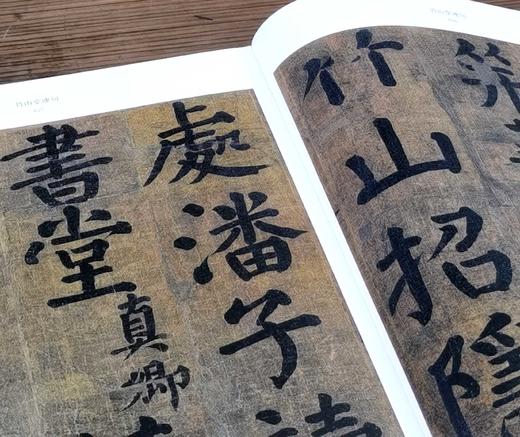 竹山堂連句
竹山招隱
竹山堂連句
處潘子讀
書堂
真卿